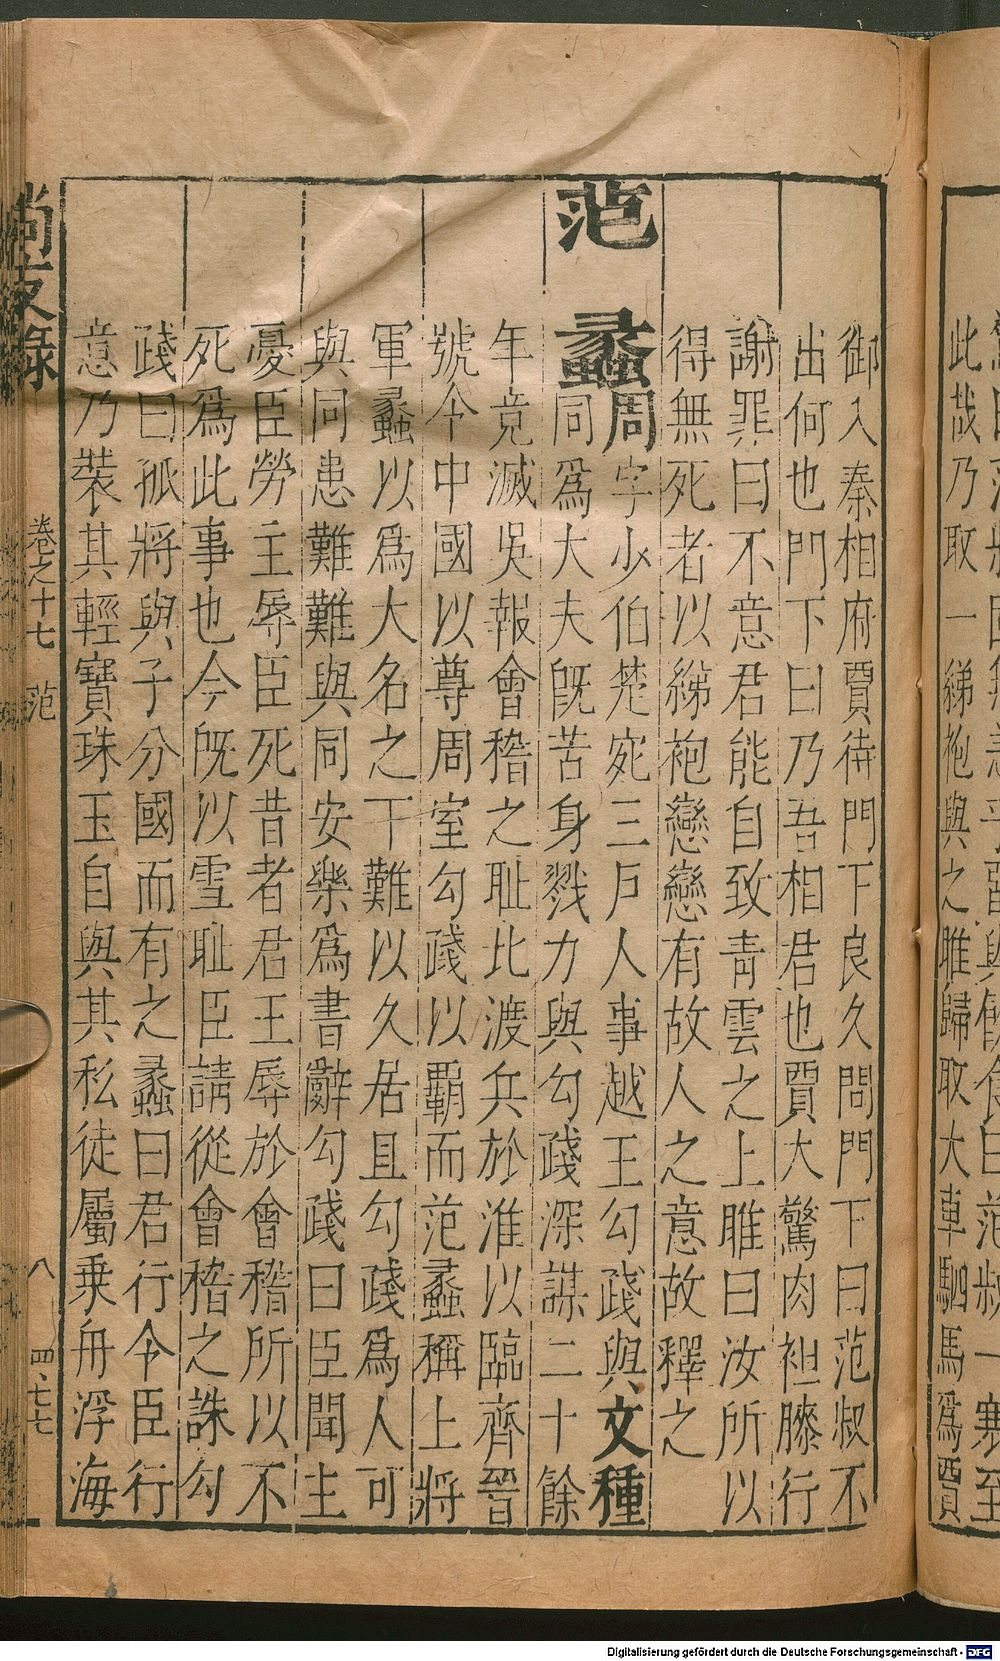 此哉乃取一綈袍與之睢歸取大車駟馬爲賈
御入秦相府賈待門下良久問門下曰范叔不
出何也門下曰乃吾相君也賈大驚肉袒膝行
謝罪曰不意君能自致青雲之上睢曰汝所以
得無死者以綈袍戀戀有故人之意故釋之
范蠡周字少伯楚宛三戸人事越王勾踐與文種
同爲大夫既苦身戮力與勾踐深謀二十餘
年竟滅吳報會稽之耻北渡兵於淮以臨齊晉
號令中國以尊周室勾踐以覇而范蠡稱上將
軍蠡以爲大名之下難以久居且勾踐爲人可
與同患難難與同安樂爲書辭勾踐曰臣聞主
憂臣勞主辱臣死昔者君王辱於會稽所以不
死爲此事也今既以雪耻臣請從會稽之誅勾
踐曰孤將與子分國而有之蠡曰君行令臣行
意乃裝其輕寶珠玉自與其私徒屬乗舟浮海
尚友錄
卷之十七
范
八
四、七七
Digitalisierung gefördert durch die Deutsche Forschungsgemeinschaft - DFG